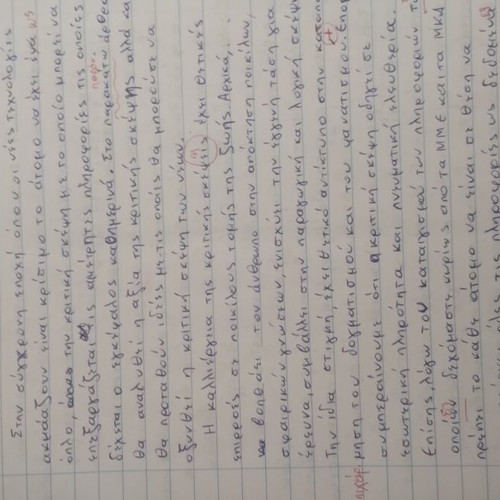 Στην σύγχρονη εποχή όπου οι νέες τεχνολογίες
ακμάζουν είναι κρίσιμο το άτομο να έχει ένα ως
όπλο, την κριτική σκέψη με το οποίο μπορεί να
επεξεργάζεται τις αμέτρητες πληροφορίες τις οποίες
δέχεται ο εγκέφαλος καθημερινά. Στο παρακάτω άρθρο
θα αναλυθεί η αξία της κριτικής σκέψης αλλά και
θα προταθούν ιδέες με τις οποίες θα μπορούσε να
οξυνθεί η κριτική σκέψη των νέων.
Η καλλιέργεια της κριτικής σκέψεις έχει θετικές
επιρροές σε ποικίλους τομής της ζωής. Αρχικά,
βοηθάει τον άνθρωπο στην απόκτηση ποικίλων,
σφαιρικών γνώσεων, ενισχύει την έμφυτη τάση για
έρευνα, συμβάλλει στην παραγωγική και λογική σκέψη.
Την ίδια στιγμή έχει θετικό αντίκτυπο στην
μηση του δογματισμού και του φανατισμού.
συμπεραίνουμε ότι η κριτική σκέψη οδηγεί σε
εσωτερική πληρότητα και πνευματική ελευθερία.
Επίσης, λόγω του καταιγισμού των πληροφοριών
οποίων δεχόμαστε κυρίως από τα ΜΜΕ και τα ΜΚΔ
πρέπει το κάθε άτομο να είναι σε θέση να
τις πληροφορίες ως δεδομένες